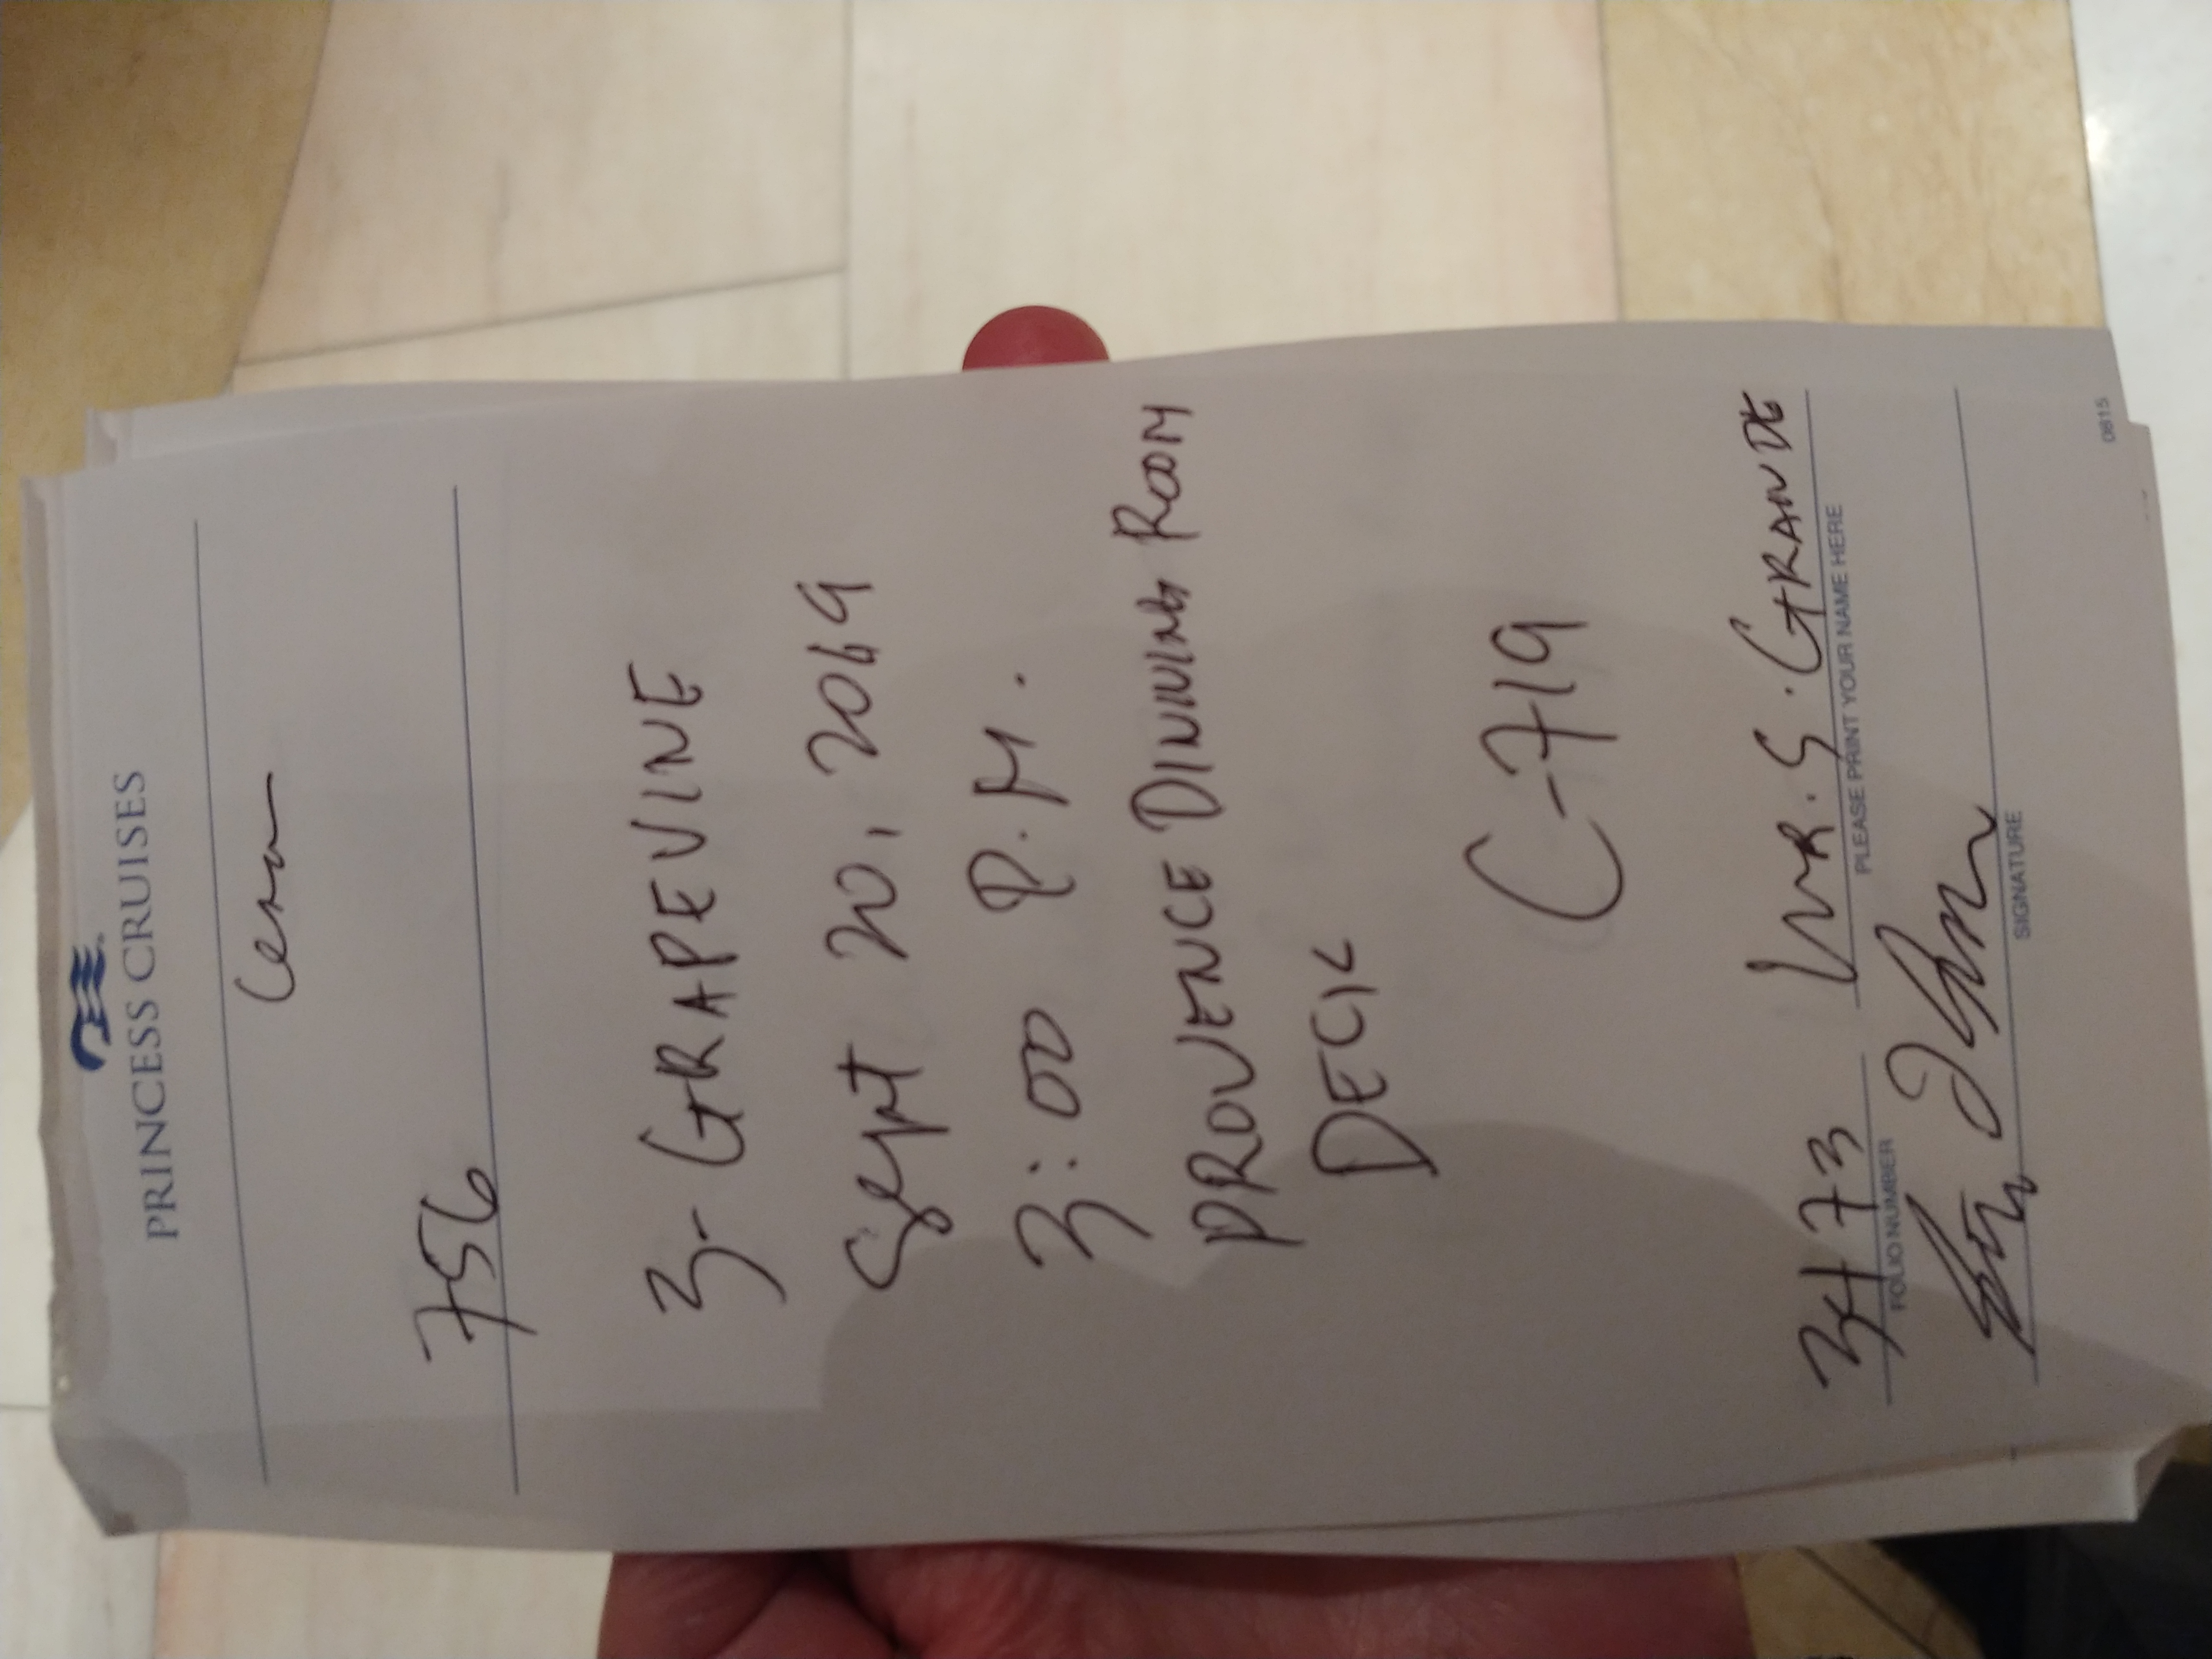 PRINCESS CRUISES
756
3- GRAPEVINE
Sept 20, 2019
3:00 P.M.
PROVENCE DINING ROOM
DECK
C-719
3473 MR. S. GRANDE
FOLIO NUMBER PLEASE PRINT YOUR NAME HERE
SIGNATURE
0815